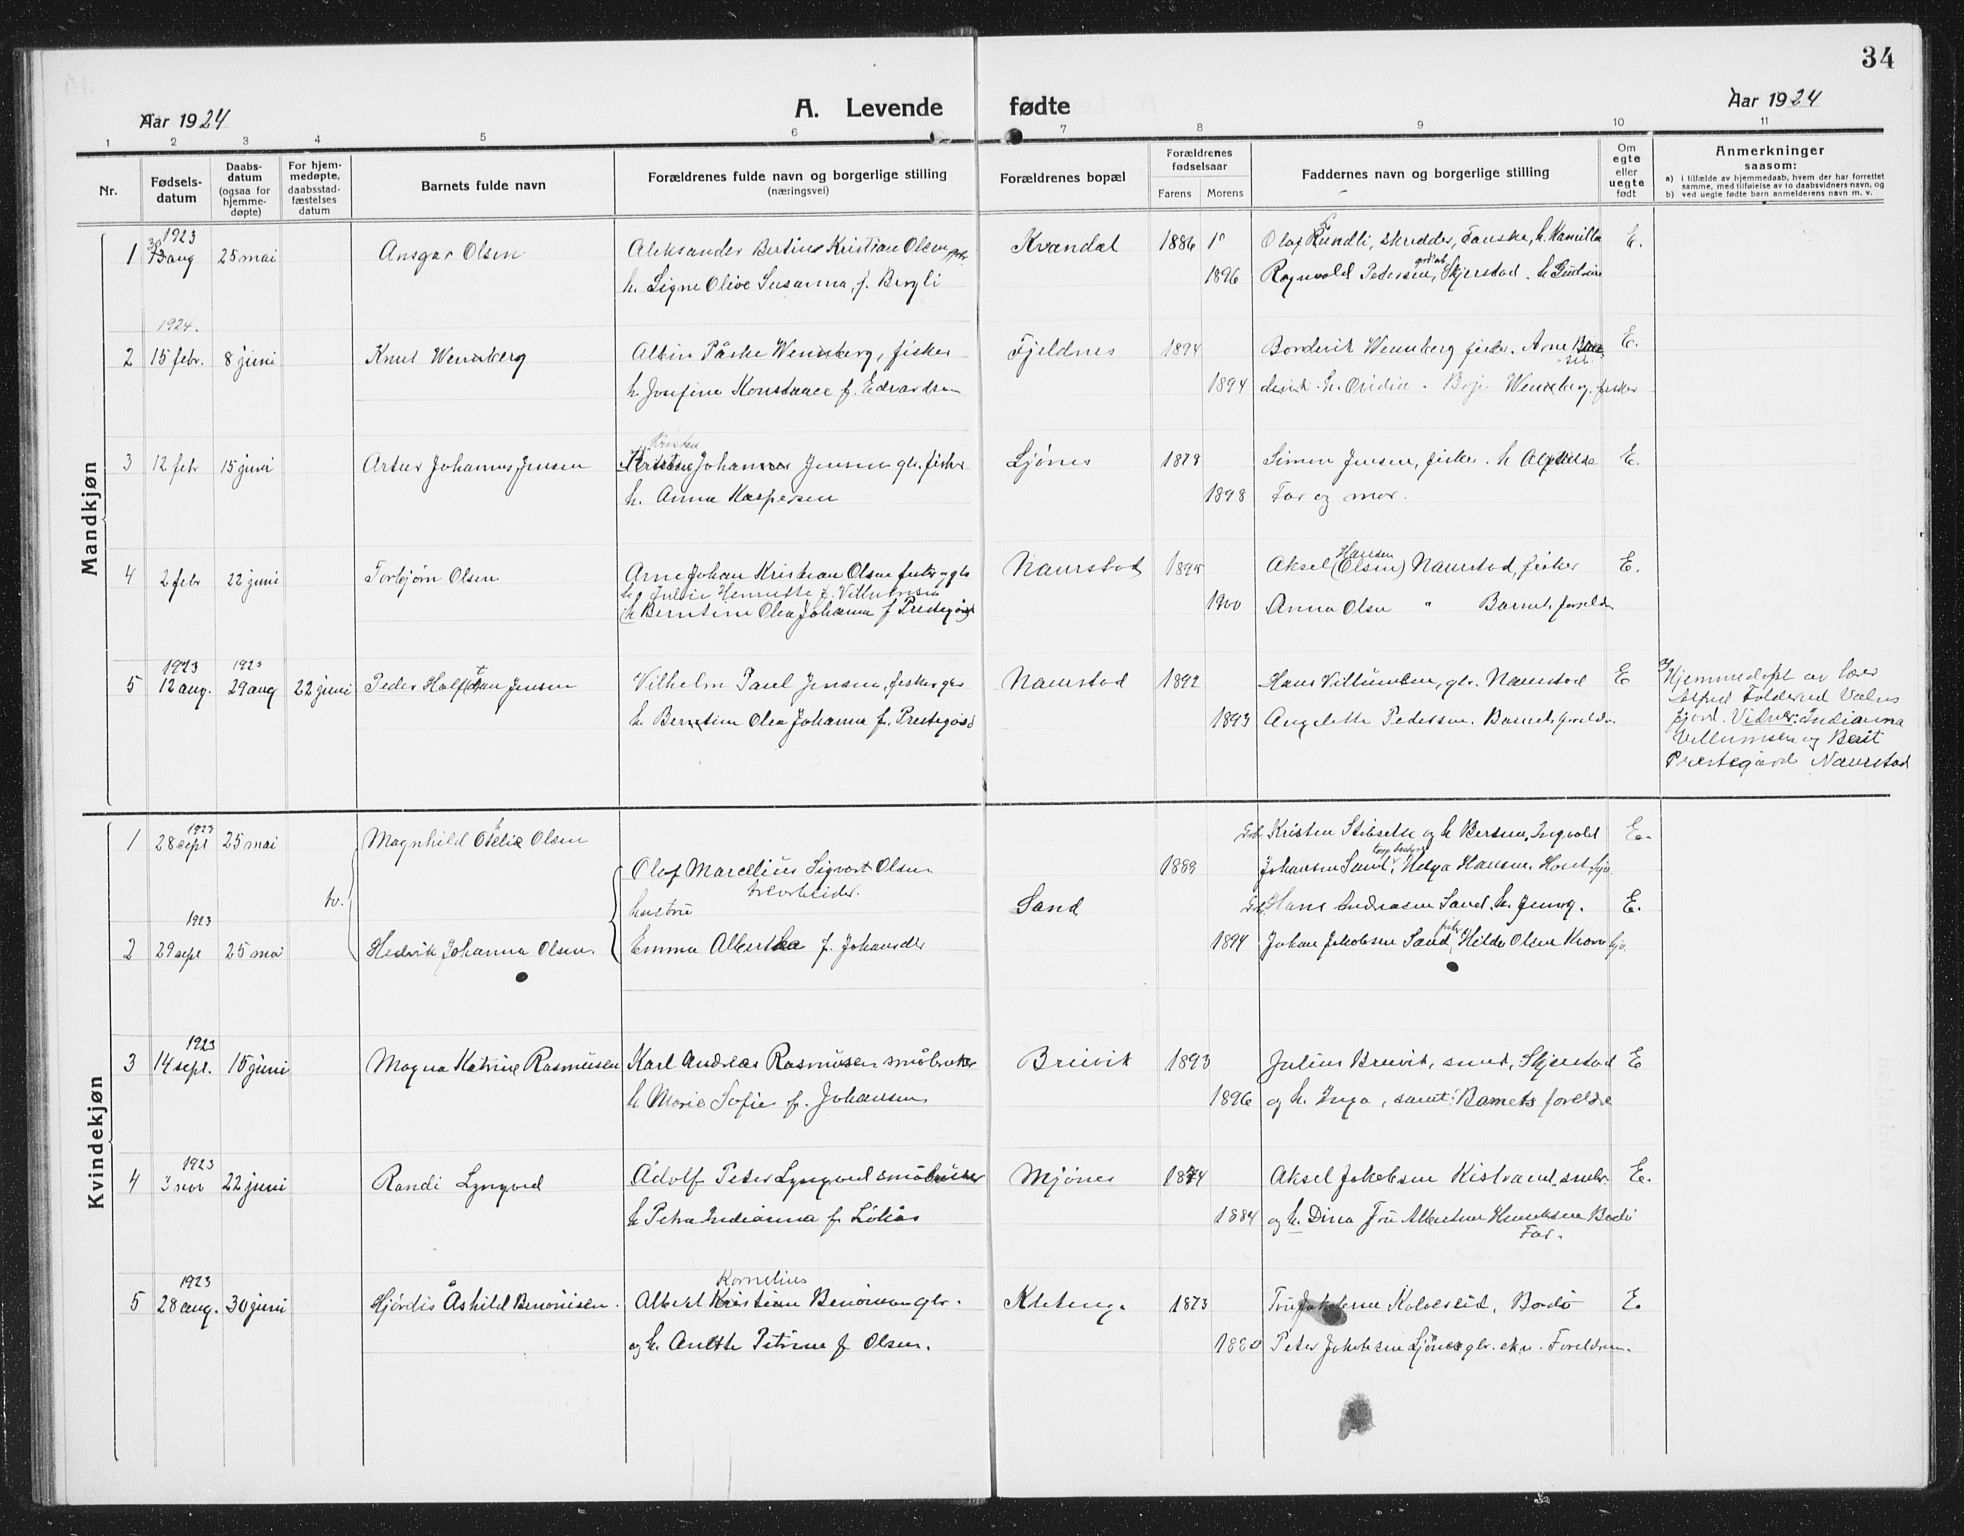 34
Aar 1924
A. Levende fødte
Aar 1924
1 2 3 4 5 6 7 8 9 10 11
Nr.
Fødsels-
datum
Daabs-
datum
(ogsaa for
hjemme-
døpte)
For hjem-
medøpte,
daabsstad-
fæstelses
datum
Barnets fulde navn
Forældrenes fulde navn og borgerlige stilling
(næringsvei)
Forældrenes bopæl
Forældrenes
fødselsaar
Farens Morens
Faddernes navn og borgerlige stilling
Om
egte
eller
uegte
født
Anmerkninger
saasom:
a) i tilfælde av hjemmedaab, hvem der har forrettet
samme, med tilføielse av to daabsvidners navn, og
b) ved uegte fødte barn anmelderens navn m. v.
Mandkjøn
1923
1 aug 25 mai Ansgar Olsen Aleksander Bertinus Kristian Olsen Kvandal 1886 Olaf Rundli, skredder, Fauske, h. Kamilla E.
h. Signe Olive Susanna, f. Bergli 1896 Ragnvald Pedersen, Skjerstad. h. Gudrun
1924.
2 15 febr. 8 juni Knut Wennberg Albin Påske Wennberg, fisker Fjeldnes 1894 Borderik Wennberg fisker. Arne E.
h. Josefine Konstance f. Edvardsen 1894 h. Ovidia. Wennberg, fisker
Kristen
3 12 febr 15 juni Artur Johannes Jensen Johannes Jensen gbr. fisker Ljønes 1878 Simon Jensen, fisker. h Alfhilde E.
h. Anna Kaspersen 1898 Far og mor.
Hansen
4 2 febr 22 juni Torbjørn Olsen Arne Johan Kristian Olsen fisker og gbr Naurstad 1895 Aksel (Olsen) Naurstad, fisker E.
h. Julie Henriette f. Villumsen
(h Berntine Olea Johanna f Prestegård) 1900 Anna Olsen " Barnets foreldre
1923 1923
5 12 aug. 29 aug 22 juni Peder Halfdan Jensen Vilhelm Paul Jensen, fisker gbr Naurstad 1892 Hans Villumsen, gbr. Naurstad E
h. Berntine Olea Johanna f. Prestegård 1893 Angelette Pedersen. Barnets foreldre.
a/ Hjemmedøpt av lærer
Alfred Folderud Valnes
fjord. Vidner: Indianna
Villumsen og Berit
Prestegård Naurstad
Kvindekjøn
1923
1 28 sept 25 mai Magnhild Otelie Olsen Kristen Stibselle og h Berntine, Ingvald E.
Olaf Marcelius Sigvart Olsen 1888 Johansen Sand, Helga Hansen, Hoset
trearbeider.
tv. hustru Sand Hans Andreasen Sand, h. Jenny. E.
1923
2 29 sept 25 mai Hedvik Johanna Olsen. Emma Albertha f. Johansdtr 1894 Johan Jakobsen Sand, fisker Hilda Olsen
1923
3 14 sept. 15 juni Magna Katrine Rasmusen Karl Andreas Rasmusen småbruker Breivik 1893 Julius Breivik, smed, Skjerstad E
h Marie Sofie f. Johansen 1896 og h. Inga, samt Barnets foreldre
1923
4 3 nov 22 juni Randi Lyngved Adolf Peter Lyngved småbruker Mjønes 1874 Aksel Jakobsen Kistrand, småbr. E.
h Petra Indianna f. Løkås 1884 og h. Dina Fru Albertine Henriksen Bodø
Far.
1923 Kornelius
5 28 aug. 30 juni Hjørdis Åshild Benonisen. Albert Kristian Benonisen gbr. Kletenga 1873 Fru Jakobsen Kolverlid, Bodø E.
og h. Anethe Petrine f Olsen. 1880 Peter Jakobsen Ljønes gbr. Foreldrene.